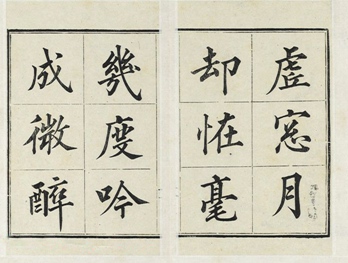 虚窓月
却恠毫
幾度吟
成微醉